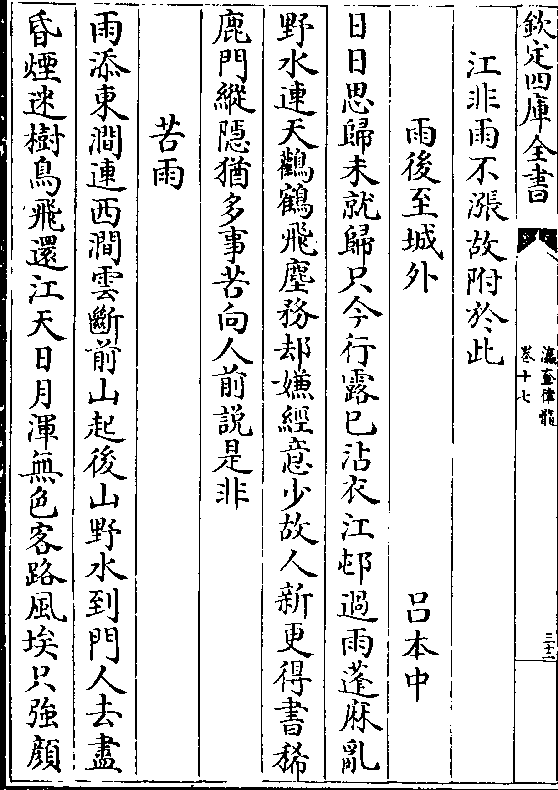 欽定四庫全書
瀛奎律髓
卷十七
三十二
江非雨不漲故附於此
雨後至城外
吕本中
日日思歸未就歸只今行露已沾衣江邨過雨蓬麻亂
野水連天鸛鶴飛塵務却嫌經意少故人新更得書稀
鹿門縱隠猶多事苦向人前説是非
苦雨
雨添東澗連西澗雲斷前山起後山野水到門人去盡
昏煙迷樹鳥飛還江天日月渾無色客路風埃只強顔